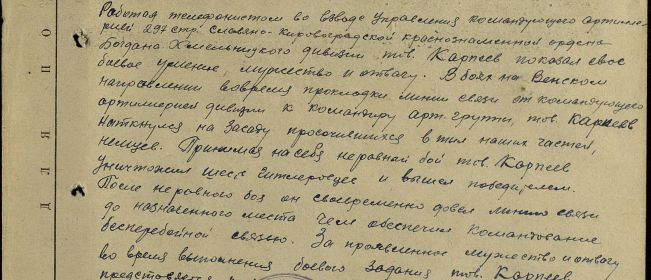 Работая телефонистом во взводе Управления командующего артилле-
рией 297 стр. Славяно-Кировоградской краснознаменной ордена
Богдана Хмельницкого дивизии тов. Карпеев показал свое
боевое умение, мужество и отвагу. В боях на Венском
направлении вовремя прокладки линии связи от командующего
артиллерией дивизии к командиру арт. группы, тов. Карпеев
наткнулся на засаду просочившихся в тыл наших частей,
немцев. Принимая на себя неравный бой тов. Карпеев
уничтожил шесть гитлеровцев и вышел победителем.
После неравного боя он своевременно довел линию связи
до назначенного места чем обеспечил командование
бесперебойной связью. За проявленное мужество и отвагу
во время выполнения боевого задания тов. Карпеев
представляется